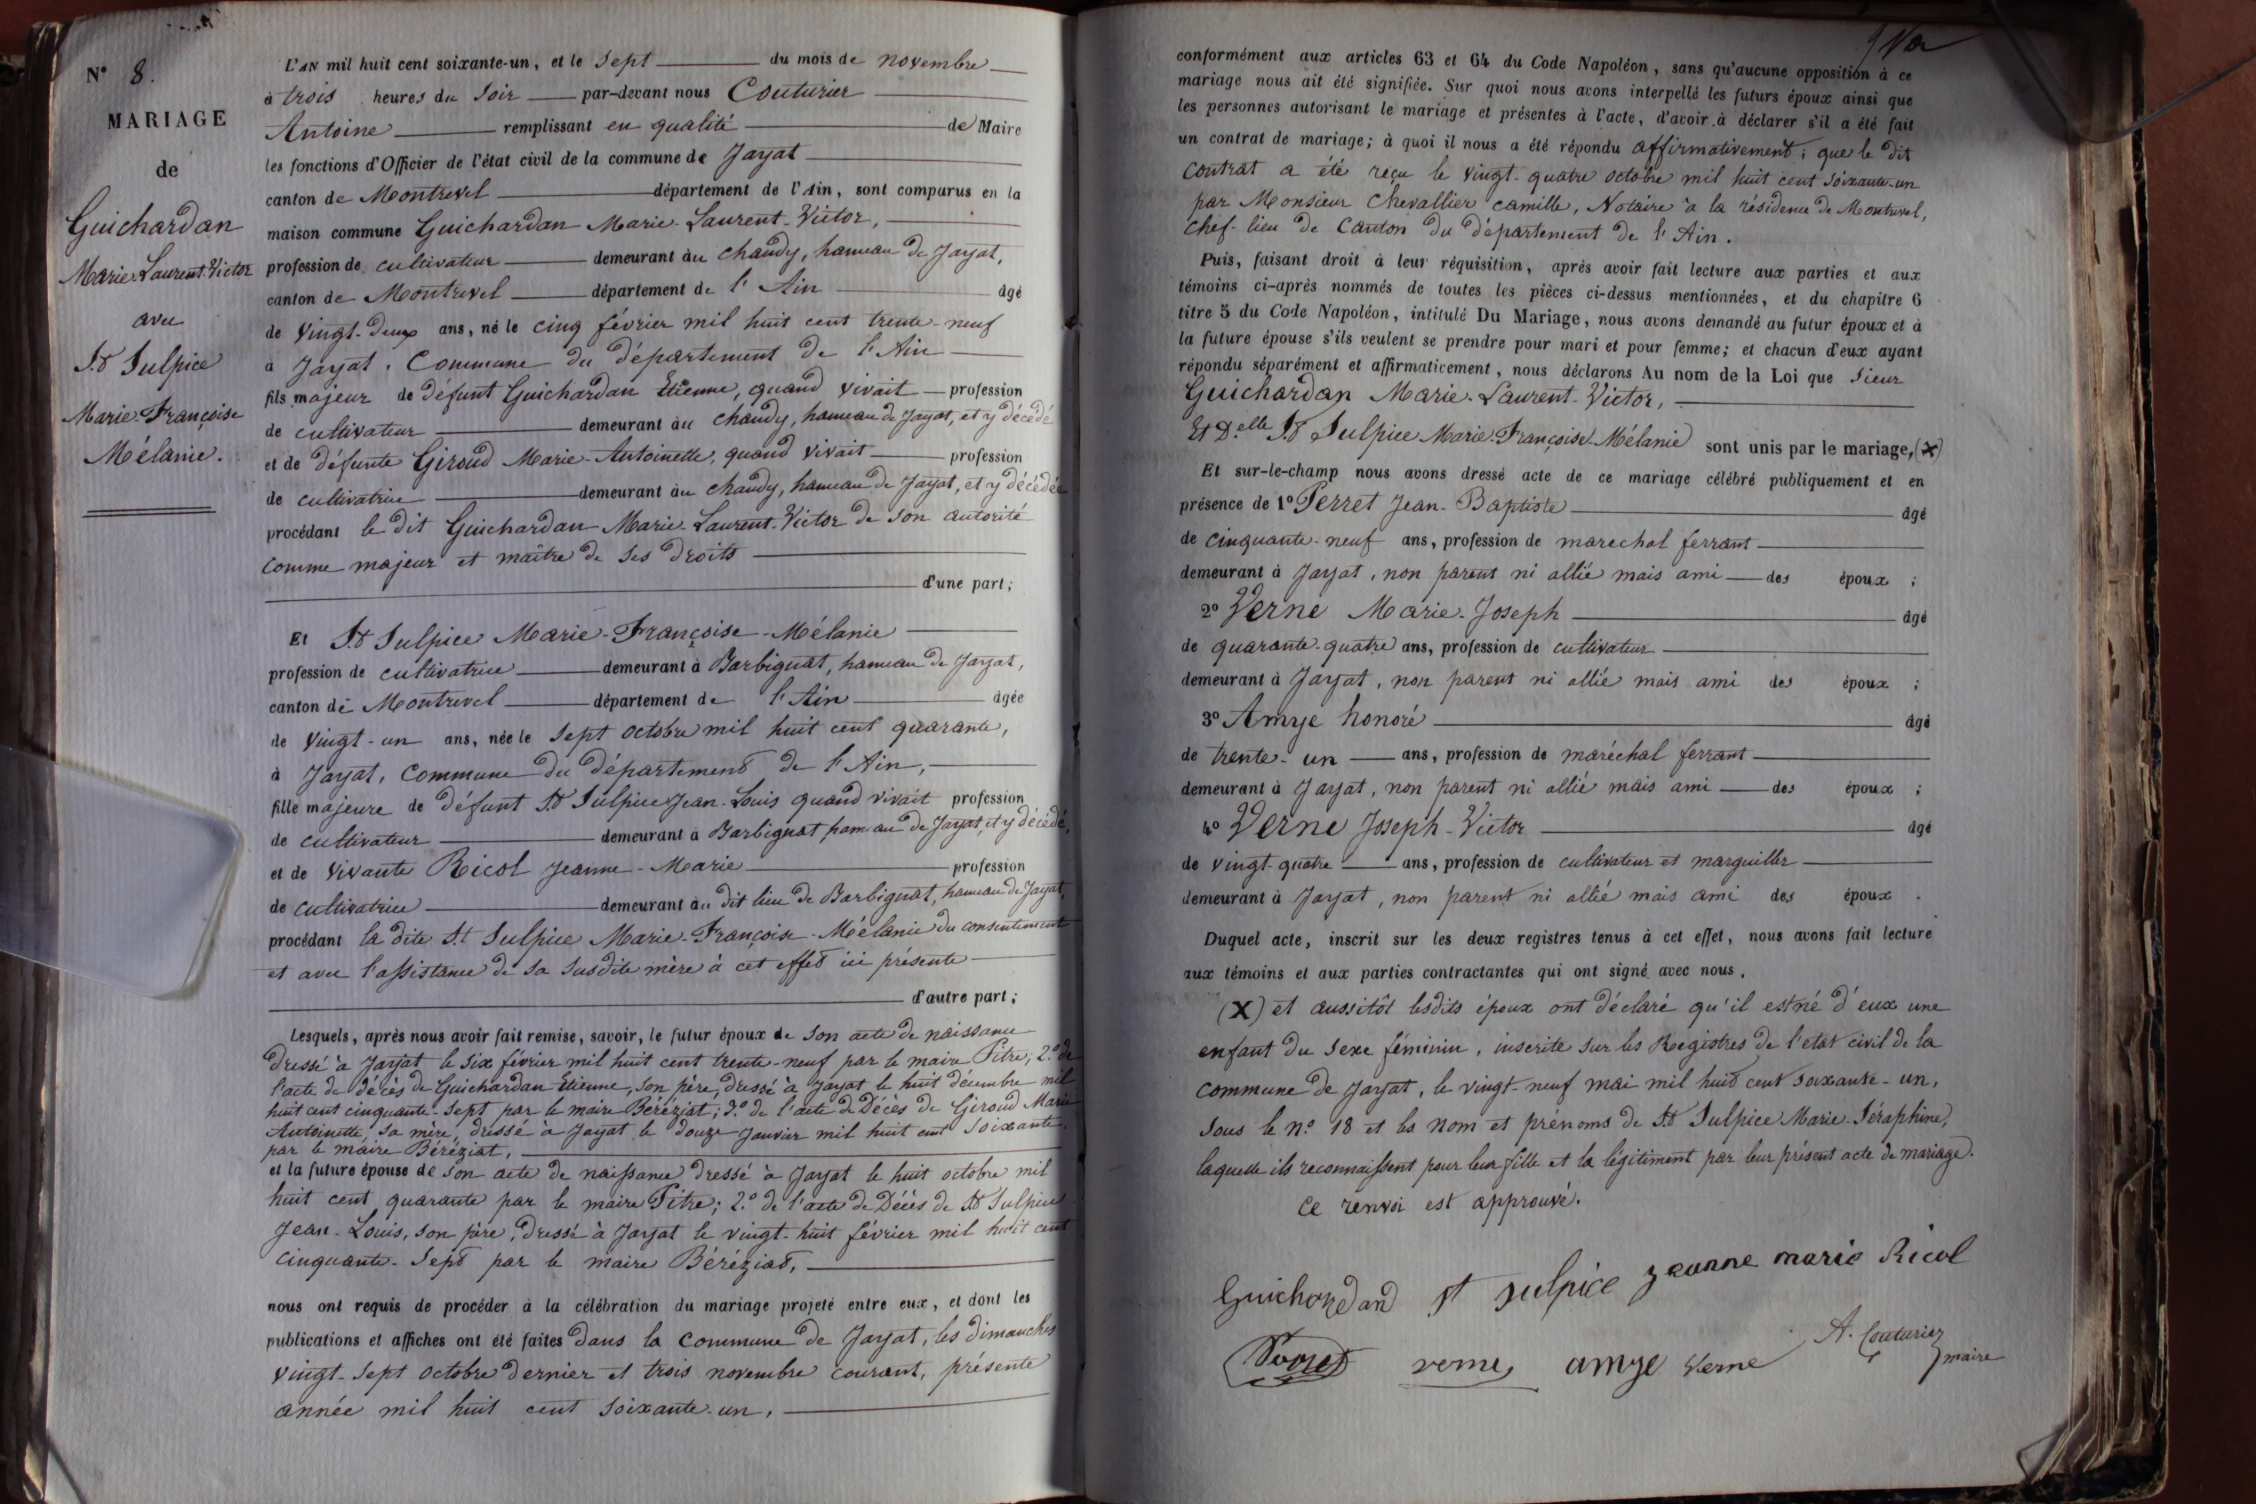 N° 8.
MARIAGE
de
Guichardan
Marie Laurent Victor
avec
St Sulpice
Marie-Françoise
Mélanie.
L'AN mil huit cent soixante-un, et le sept du mois de novembre
à trois heures du soir par-devant nous Couturier
Antoine remplissant en qualité de Maire
les fonctions d'Officier de l'état civil de la commune de Jayat
canton de Montrevel département de l'Ain, sont comparus en la
maison commune Guichardan Marie-Laurent-Victor,
profession de cultivateur demeurant au chaudy, hameau de Jayat,
canton de Montrevel département de l'Ain âgé
de vingt-deux ans, né le cinq février mil huit cent trente-neuf
à Jayat, Commune du département de l'Ain
fils majeur de défunt Guichardan Etienne, quand vivait profession
de cultivateur demeurant au chaudy, hameau de Jayat, et y décédé
et de défunte Giroud Marie-Antoinette, quand vivait profession
de cultivatrice demeurant au chaudy, hameau de Jayat, et y décédée
procédant le dit Guichardan Marie-Laurent-Victor de son autorité
comme majeur et maître de ses droits
d'une part;
Et St Sulpice Marie-Françoise-Mélanie
profession de cultivatrice demeurant à Barbignat, hameau de Jayat,
canton de Montrevel département de l'Ain âgée
de vingt-un ans, née le sept octobre mil huit cent quarante,
à Jayat, Commune du département de l'Ain,
fille majeure de défunt St Sulpice Jean-Louis quand vivait profession
de cultivateur demeurant à Barbignat hameau de Jayat, et y décédé,
et de vivante Ricol Jeanne-Marie profession
de cultivatrice demeurant au dit lieu de Barbignat, hameau de Jayat,
procédant la dite St Sulpice Marie-Françoise-Mélanie du consentement
et avec l'assistance de sa susdite mère à cet effet ici présente
d'autre part;
Lesquels, après nous avoir fait remise, savoir, le futur époux de son acte de naissance
dressé à Jayat le six février mil huit cent trente-neuf par le maire Pitre; 2.° de
l'acte de décès de Guichardan Etienne, son père, dressé à Jayat le huit décembre mil
huit cent cinquante-sept par le maire Béréziat; 3.° de l'acte de Décès de Giroud Marie
Antoinette, sa mère, dressé à Jayat le douze Janvier mil huit cent soixante,
par le maire Béréziat,
et la future épouse de son acte de naissance dressé à Jayat le huit octobre mil
huit cent quarante par le maire Pitre; 2.° de l'acte de Décès de St Sulpice
Jean-Louis, son père, dressé à Jayat le vingt-huit février mil huit cent
cinquante-sept par le maire Béréziat,
nous ont requis de procéder à la célébration du mariage projeté entre eux, et dont les
publications et affiches ont été faites dans la Commune de Jayat, les dimanches
vingt-sept octobre dernier et trois novembre courant, présente
année mil huit cent soixante-un,
conformément aux articles 63 et 64 du Code Napoléon, sans qu'aucune opposition à ce
mariage nous ait été signifiée. Sur quoi nous avons interpellé les futurs époux ainsi que
les personnes autorisant le mariage et présentes à l'acte, d'avoir à déclarer s'il a été fait
un contrat de mariage; à quoi il nous a été répondu affirmativement; que le dit
contrat a été reçu le vingt-quatre octobre mil huit cent soixante-un
par Monsieur Chevallier camille, Notaire à la résidence de Montrevel,
chef-lieu de Canton du département de l'Ain.
Puis, faisant droit à leur réquisition, après avoir fait lecture aux parties et aux
témoins ci-après nommés de toutes les pièces ci-dessus mentionnées, et du chapitre 6
titre 5 du Code Napoléon, intitulé Du Mariage, nous avons demandé au futur époux et à
la future épouse s'ils veulent se prendre pour mari et pour femme; et chacun d'eux ayant
répondu séparément et affirmativement, nous déclarons Au nom de la Loi que sieur
Guichardan Marie-Laurent-Victor,
Et D.elle St Sulpice Marie-Françoise-Mélanie sont unis par le mariage, (X)
Et sur-le-champ nous avons dressé acte de ce mariage célébré publiquement et en
présence de 1° Perret Jean-Baptiste âgé
de cinquante-neuf ans, profession de marechal ferrant
demeurant à Jayat, non parent ni allié mais ami des époux;
2° Verne Marie-Joseph âgé
de quarante-quatre ans, profession de cultivateur
demeurant à Jayat, non parent ni allié mais ami des époux;
3° Amye honoré âgé
de trente-un ans, profession de maréchal ferrant
demeurant à Jayat, non parent ni allié mais ami des époux;
4° Verne Joseph-Victor âgé
de vingt-quatre ans, profession de cultivateur et marguiller
demeurant à Jayat, non parent ni allié mais ami des époux.
Duquel acte, inscrit sur les deux registres tenus à cet effet, nous avons fait lecture
aux témoins et aux parties contractantes qui ont signé avec nous.
(X) et aussitôt lesdits époux ont déclaré qu'il est né d'eux une
enfant du sexe féminin, inscrite sur les Registres de l'etat civil de la
commune de Jayat, le vingt-neuf mai mil huit cent soixante-un,
sous le n.° 18 et les nom et prénoms de St Sulpice Marie-Séraphine,
laquelle ils reconnaissent pour leur fille et la légitiment par leur présent acte de mariage.
Ce renvoi est approuvé.
Guichardand St Sulpice Jeanne marie Ricol
Perret verne amye Verne A. Couturier
maire